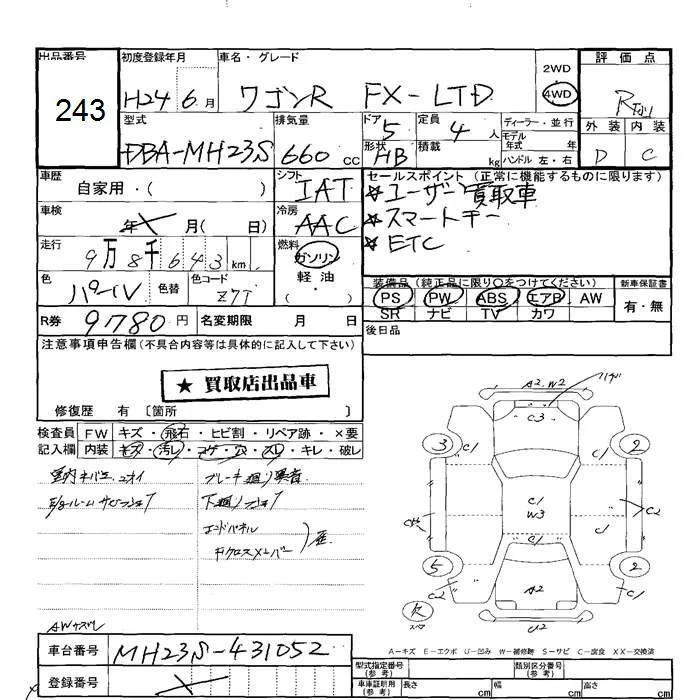 出品番号 初度登録年月 車名・グレード 評価点
243
H24 6月 ワゴンR FX-LTD 2WD 4WD R
型式 排気量 ドア 定員 ディーラー・並行 外装 内装
DBA-MH23S 660cc 5 4人 モデル年式 年 D C
形状 HB 積載 kg ハンドル 左・右
車歴 シフト セールスポイント(正常に機能するものに限ります)
自家用・( ) IAT ☆ユーザー買取車
車検 冷房 ☆スマートキー
年 月( 日) AAC ☆ETC
走行 燃料
9万8千643km ガソリン
軽油・
色 色替 色コード 装備品(純正品に限り○をつけてください) 新車保証書
パール Z7T PS PW ABS エアB AW 有・無
SR ナビ TV カワ
R券 9780円 名変期限 月 日 後日品
注意事項申告欄(不具合内容等は具体的に記入して下さい)
★買取店出品車
修復歴 有〔箇所 〕
検査員 FW キズ・飛石・ヒビ割・リペア跡・×要
記入欄 内装 キズ・汚レ・コゲ・穴・スレ・キレ・破レ
下廻り
A2.W2
C3
3 C1 C1 2
C1
W3
C2
C1 C1
5 2
C2 A2 C1
欠
U2
A-キズ E-エクボ U-凹み W-補修跡 S-サビ C-腐食 XX-交換済
車台番号 MH23S-431052
型式指定番号(参考) 類別区分番号(参考)
登録番号
車車証明用(参考) 長さ cm 幅 cm 高さ cm